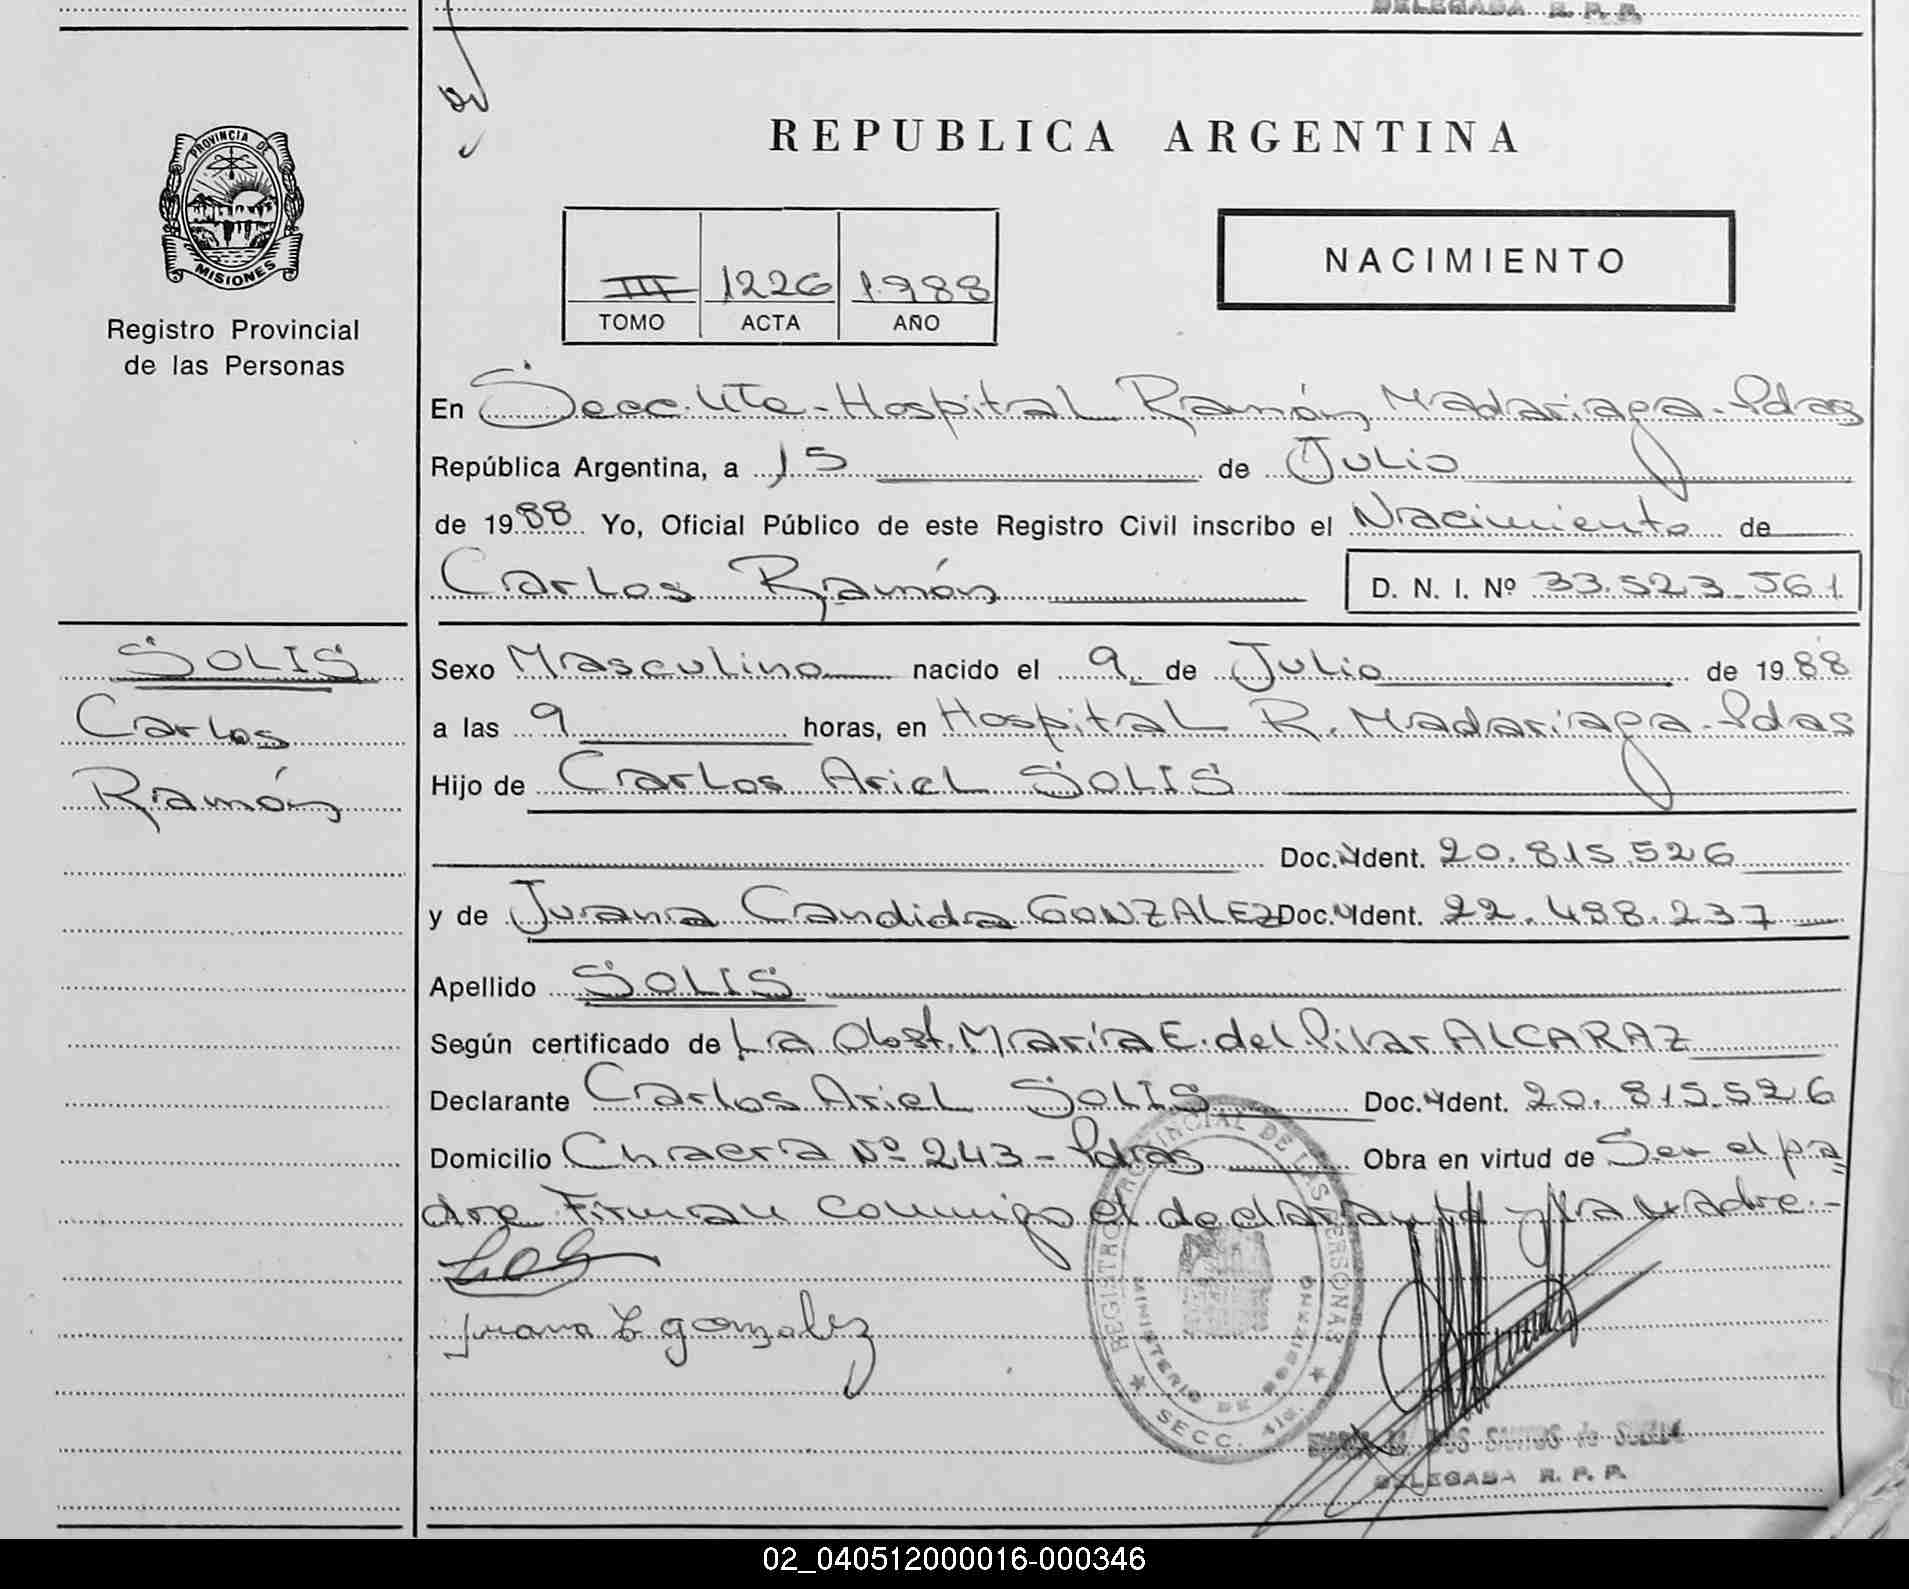 DELEGADA R. P. P.
PROVINCIA DE
MISIONES
Registro Provincial
de las Personas
REPUBLICA ARGENTINA
III 1226 1988
TOMO ACTA AÑO
NACIMIENTO
En Secc. 4ta - Hospital Ramón Madariaga - Pdas
República Argentina, a 15 de Julio
de 1988 Yo, Oficial Público de este Registro Civil inscribo el Nacimiento de
Carlos Ramón D. N. I. Nº 33.523.561
SOLIS
Carlos
Ramón
Sexo Masculino nacido el 9 de Julio de 1988
a las 9 horas, en Hospital R. Madariaga - Pdas
Hijo de Carlos Ariel SOLIS
Doc. Ident. 20.815.526
y de Juana Candida GONZALEZ Doc. Ident. 22.498.237
Apellido SOLIS
Según certificado de La Obst. María E. del Pilar ALCARAZ
Declarante Carlos Ariel SOLIS Doc. Ident. 20.815.526
Domicilio Chacra Nº 243 - Pdas Obra en virtud de Ser el pa=
dre Firman conmigo el declarante y la madre.-
Juana C gonzalez
REGISTRO PROVINCIAL DE LAS PERSONAS
MINISTERIO DE GOBIERNO
SECC. 4ta.
DOS SANTOS de
DELEGADA R. P. P.
02_040512000016-000346